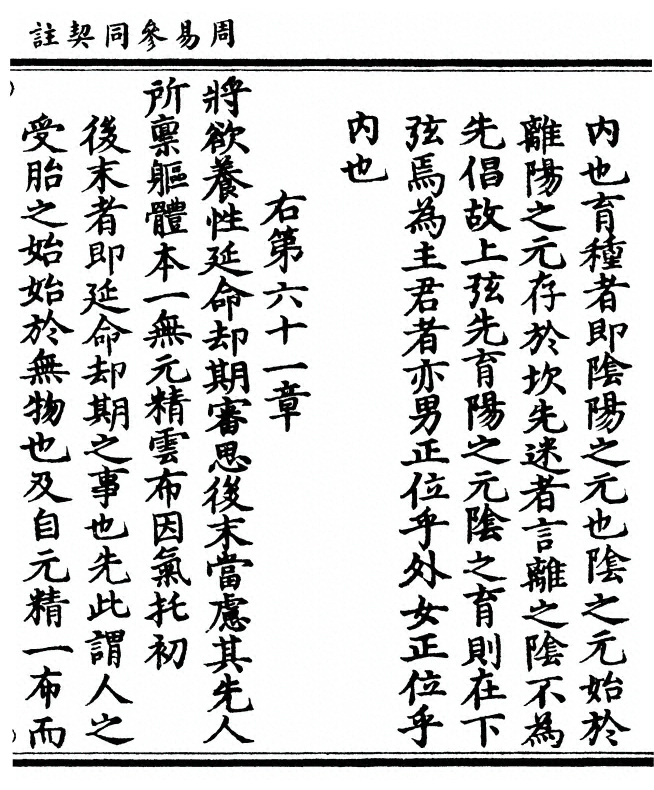 周易參同契註
內也育種者即陰陽之元也陰之元始於
離陽之元存於坎先迷者言離之陰不為
先倡故上弦先育陽之元陰之育則在下
弦焉為主君者亦男正位乎外女正位乎
內也
右第六十一章
將欲養性延命却期審思後末當慮其先人
所禀軀體本一無元精雲布因氣托初
後末者即延命却期之事也先此謂人之
受胎之始始於無物也及自元精一布而